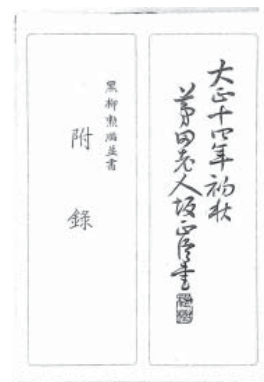 大正十四年初秋
茅田老人坂正臣書
黑柳勲編並書
附錄